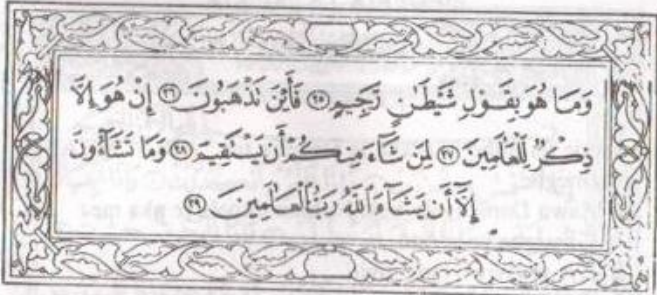 وَمَا هُوَ بِقَوْلِ شَيْطَٰنٍ رَّجِيمٍ ۝٢٥ فَأَيْنَ تَذْهَبُونَ ۝٢٦ إِنْ هُوَ إِلَّا
ذِكْرٌ لِّلْعَالَمِينَ ۝٢٧ لِمَن شَآءَ مِنكُمْ أَن يَسْتَقِيمَ ۝٢٨ وَمَا تَشَآءُونَ
إِلَّآ أَن يَشَآءَ ٱللَّهُ رَبُّ ٱلْعَالَمِينَ ۝٢٩